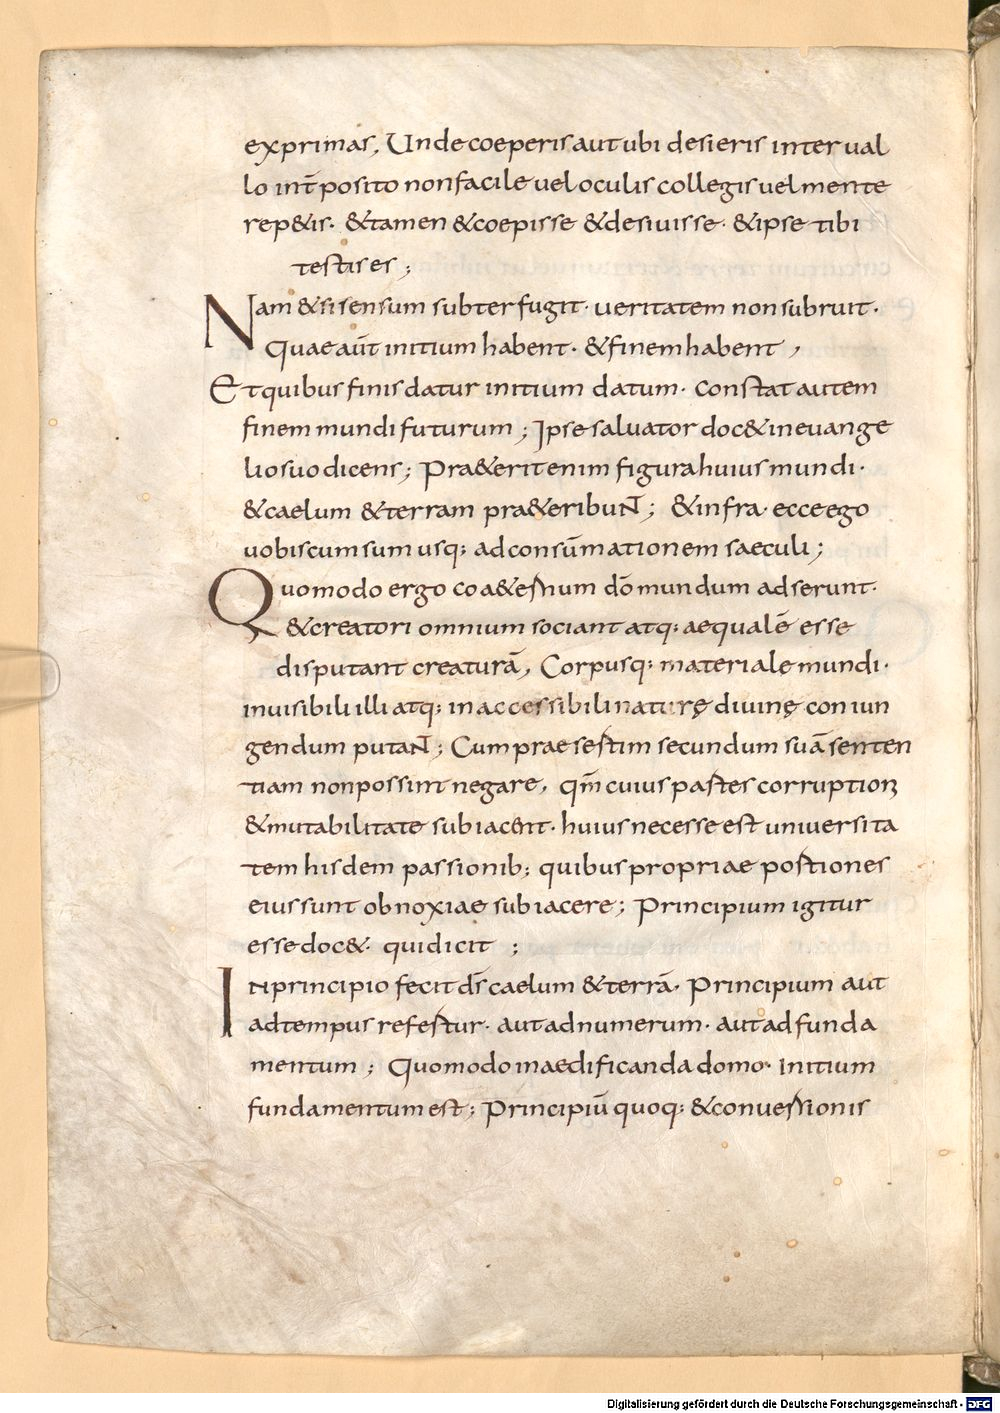 exprimas, Unde coeperis aut ubi desieris interual
lo int̄posito non facile uel oculis collegis uel mente
rep&is. &tamen &coepisse &desiuisse. &ipse tibi
testis es;
Nam &si sensum subterfugit. ueritatem non subruit.
Quae aūt initium habent. &finem habent,
Et quibus finis datur initium datum. Constat autem
finem mundi futurum; Ipse saluator doc& in euange
lio suo dicens; Pra&erit enim figura huius mundi.
&caelum &terram pra&eribunt; &infra. ecce ego
uobiscum sum usq; ad consūmationem saeculi;
Quomodo ergo coa&ernum dō mundum adserunt.
&creatori omnium sociant atq; aequalē esse
disputant creaturā, Corpusq; materiale mundi.
inuisibili illi atq; inaccessibili naturę diuinę coniun
gendum putant; Cum praesertim secundum suā senten
tiam non possint negare, qm̄ cuius partes corruptioni
&mutabilitate subiacent. huius necesse est uniuersita
tem hisdem passionib; quibus propriae portiones
eius sunt obnoxiae subiacere; Principium igitur
esse doc&. qui dicit;
In principio fecit ds̄ caelum &terrā. Principium aut
ad tempus refertur. aut ad numerum. aut ad funda
mentum; Quomodo in aedificanda domo. initium
fundamentum est; Principiū quoq; &conuersionis
Digitalisierung gefördert durch die Deutsche Forschungsgemeinschaft - DFG